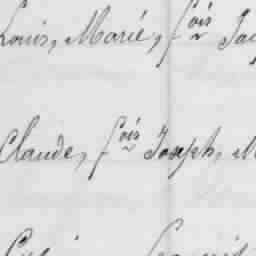 Louis, Marie, f.ois Ja
Claude, f.ois Joseph, M